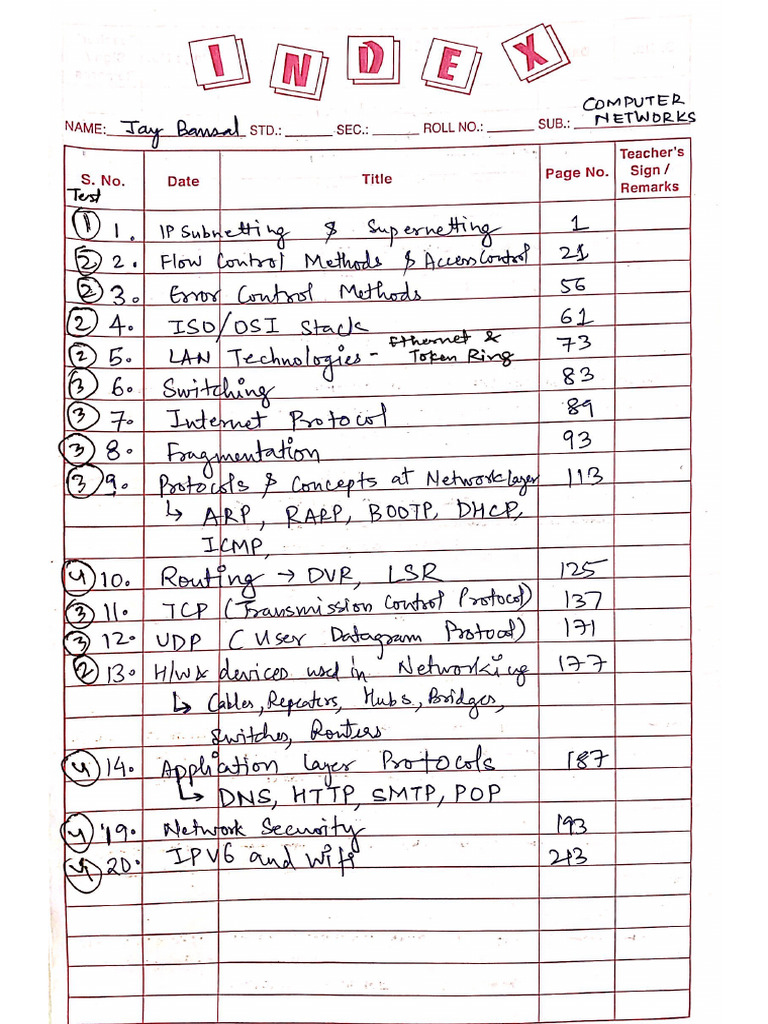 INDEX
NAME: Jay Bansal STD.: SEC.: ROLL NO.: SUB.: COMPUTER NETWORKS
S. No. Date Title Page No. Teacher's Sign / Remarks
Test
1 1. IP Subnetting & Supernetting 1
2 2. Flow Control Methods & Access Control 21
2 3. Error Control Methods 56
2 4. ISO/OSI Stack 61
2 5. LAN Technologies - Ethernet & Token Ring 73
3 6. Switching 83
3 7. Internet Protocol 89
3 8. Fragmentation 93
3 9. Protocols & Concepts at Network layer 113
↳ ARP, RARP, BOOTP, DHCP,
ICMP,
4 10. Routing → DVR, LSR 125
3 11. TCP (Transmission Control Protocol) 137
3 12. UDP (User Datagram Protocol) 171
2 13. H/W & devices used in Networking 177
↳ Cables, Repeaters, Hubs, Bridges,
Switches, Routers
4 14. Application layer Protocols 187
↳ DNS, HTTP, SMTP, POP
4 19. Network Security 193
4 20. IPV6 and Wifi 213